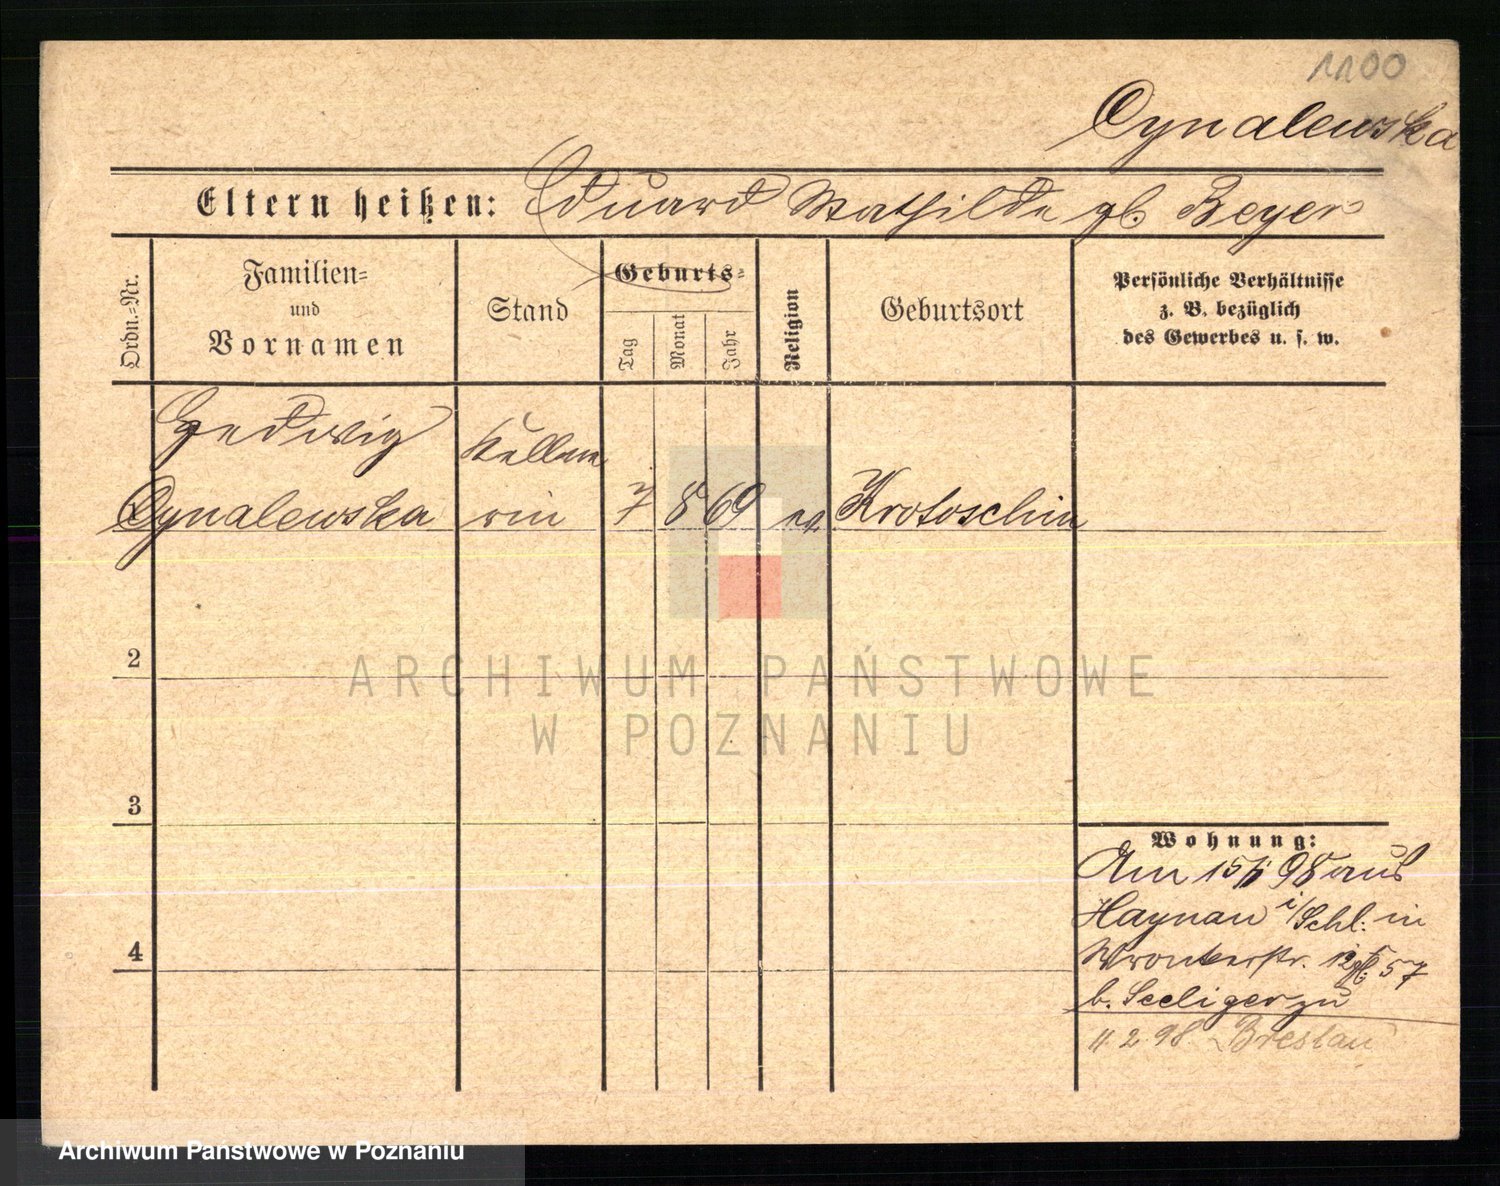 1100
Cynalewska
Eltern heißen: Eduard Mathilde gb. Beyer
Ordn.-Nr.
Familien-
und
Vornamen
Stand
Geburts-
Tag
Monat
Jahr
Religion
Geburtsort
Persönliche Verhältnisse
z. B. bezüglich
des Gewerbes u. s. w.
Hedwig Kellne
Cynalewska rin 7 8 69 ev. Krotoschin
2
ARCHIWUM PAŃSTWOWE
W POZNANIU
3
Wohnung:
Am 15/1 98 aus
Haynau i/Schl: in
4
Wronkerstr. 12 57
b. Seeliger zu
11. 2. 98. Breslau
Archiwum Państwowe w Poznaniu